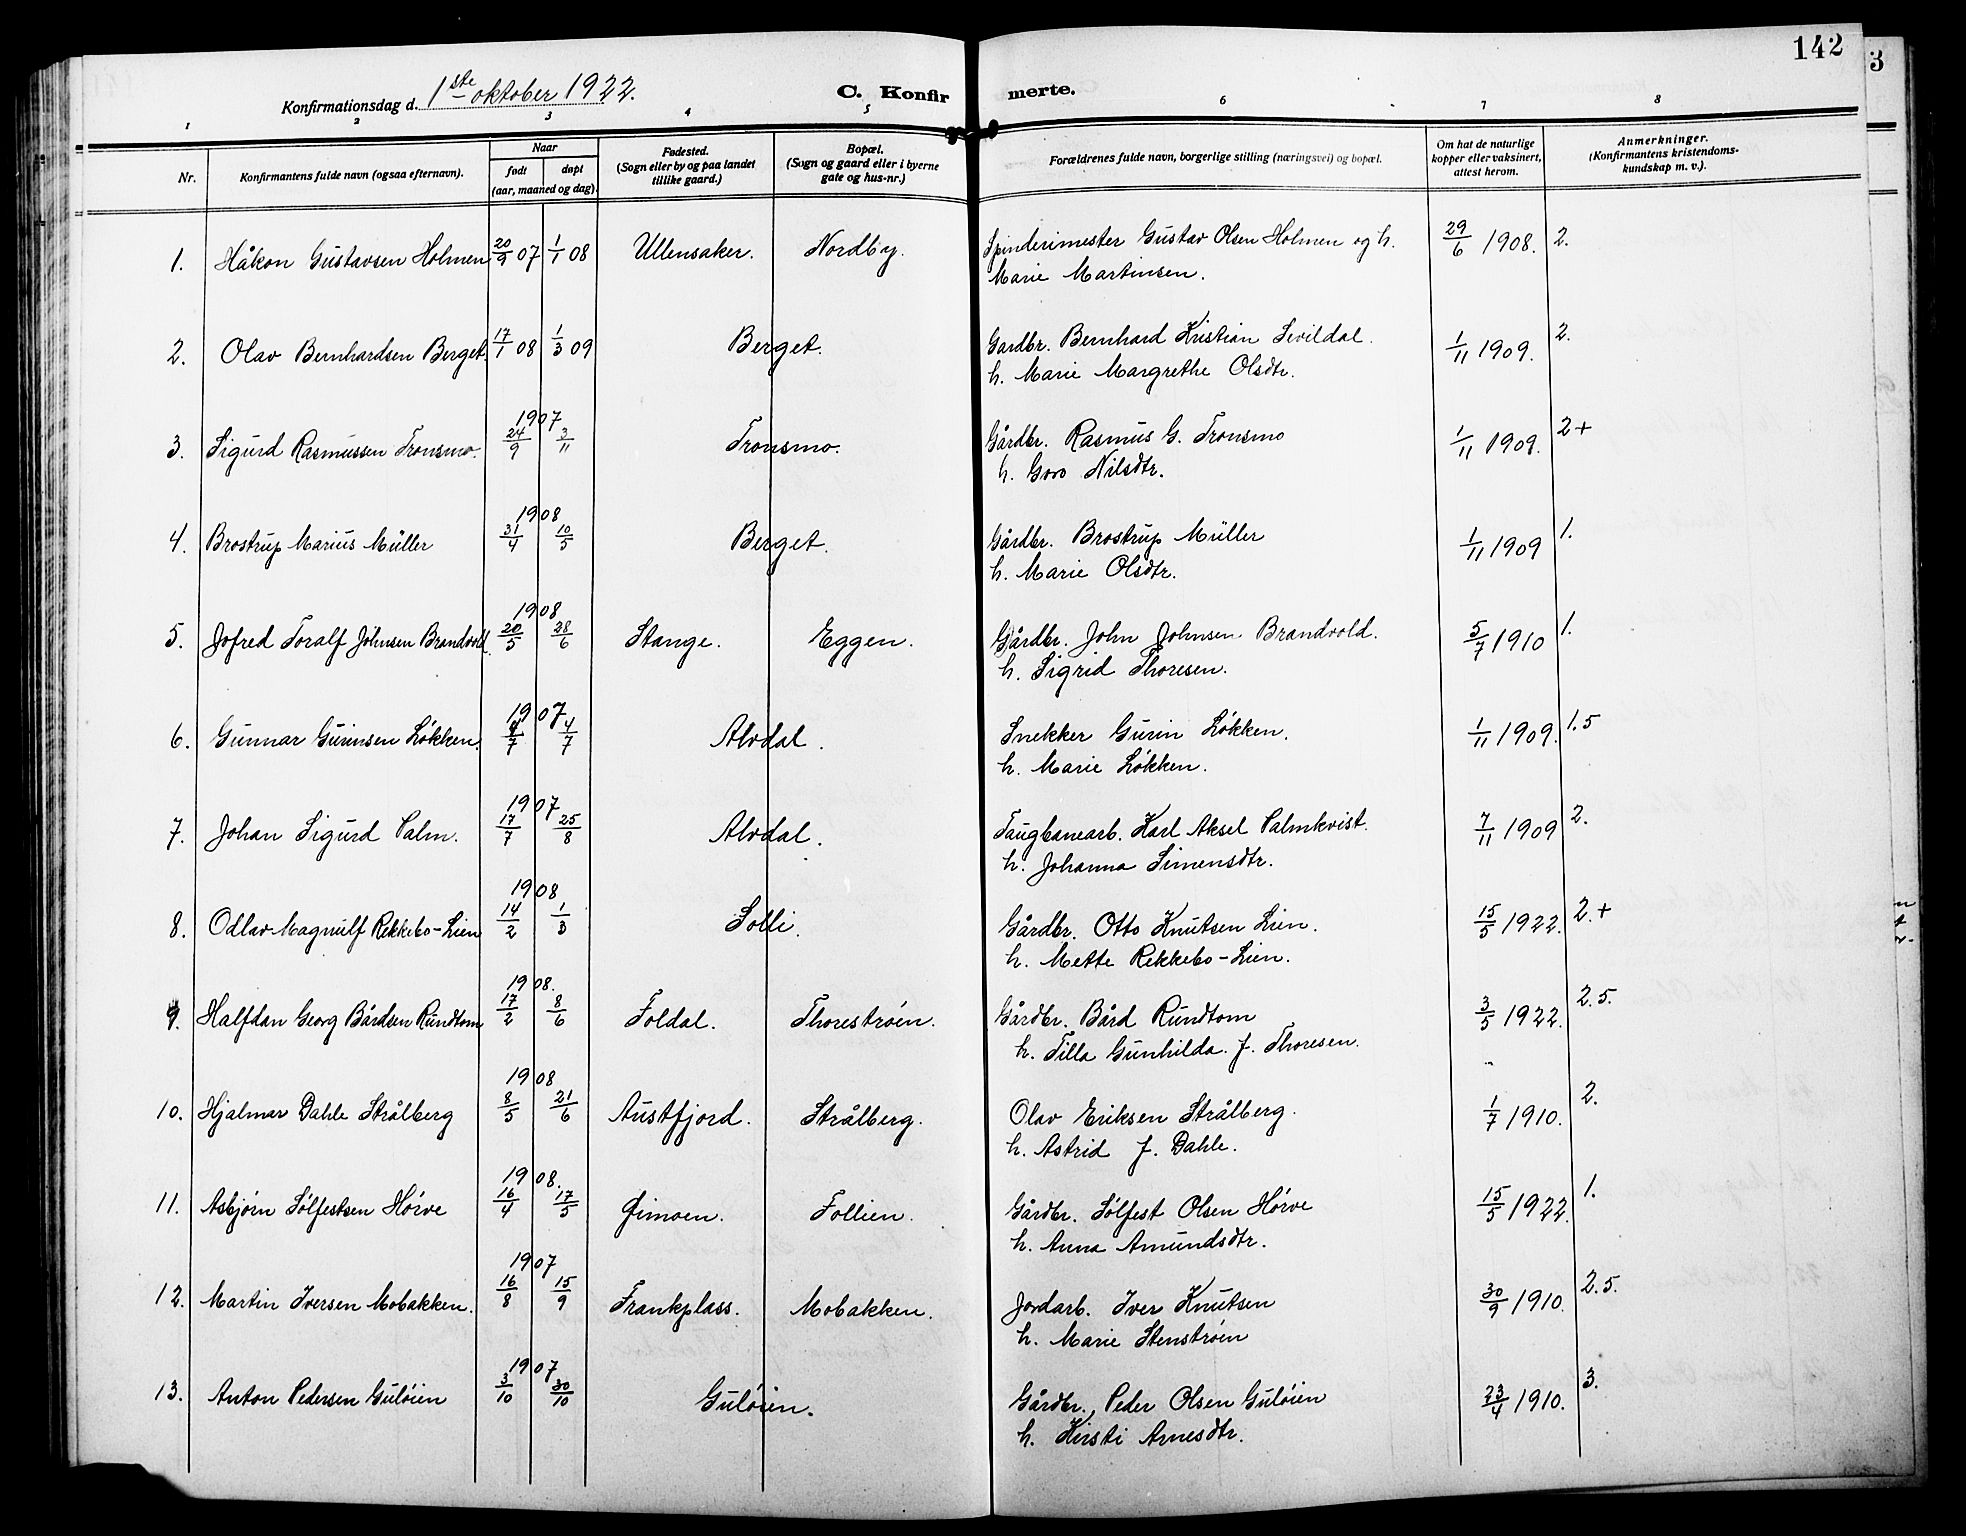 142
3
Konfirmationsdag d. 1ste oktober 1922.
C. Konfirmerte.
1 2 3 4 5 6 7 8
Nr.
Konfirmantens fulde navn (ogsaa efternavn).
Naar
født døpt
(aar, maaned og dag).
Fødested.
(Sogn eller by og paa landet
tillike gaard.)
Bopæl.
(Sogn og gaard eller i byerne
gate og hus-nr.)
Forældrenes fulde navn, borgerlige stilling (næringsvei) og bopæl.
Om hat de naturlige
kopper eller vaksinert,
attest herom.
Anmerkninger.
(Konfirmantens kristendoms-
kundskap m. v.).
1. Håkon Gustavsen Holmen 20/9 07 1/1 08 Ullensaker. Nordby. Spinderimester Gustav Olsen Holmen og h. 29/6 1908. 2.
Marie Martinsen.
2. Olav Bernhardsen Berget. 17/1 08 1/3 09 Berget. Gardbr. Bernhard Kristian Sevildal. 1/11 1909. 2.
h. Marie Margrethe Olsdtr.
1907
3. Sigurd Rasmussen Tronsmo. 24/9 3/11 Tronsmo. Gårdbr. Rasmus G. Tronsmo 1/11 1909. 2+
h. Goro Nilsdtr.
1908
4. Brostrup Marius Müller 31/4 10/5 Berget. Gårdbr. Brostrup Müller 1/11 1909 1.
h. Marie Olsdtr.
1908
5. Jofred Toralf Johnsen Brandvold. 20/5 28/6 Stange. Eggen. Gårdbr. John Johnsen Brandvold. 5/7 1910 1.
h. Sigrid Thoresen.
1907
6. Gunnar Gurinsen Løkken. 4/7 4/7 Alvdal. Snekker Gurin Løkken. 1/11 1909. 1.5
h. Marie Løkken.
1907
7. Johan Sigurd Palm. 17/7 25/8 Alvdal. Taugbanearb. Karl Aksel Palmkvist. 7/11 1909 2.
h. Johanna Simensdtr.
1908
8. Odlav Magnulf Rekkebo-Lien 14/2 1/3 Solli. Gårdbr. Otto Knutsen Lien. 15/5 1922. 2.+
h. Mette Rekkebo-Lien.
1908.
9. Halfdan Georg Bårdsen Rundtom 17/2 8/6 Foldal. Thorestrøen. Gårdbr. Bård Rundtom 3/5 1922. 2.5.
h. Tilla Gunhilda. J. Thoresen.
1908
10. Hjalmar Dahle Strålberg 8/5 21/6 Austfjord. Strålberg. Olav Eriksen Strålberg. 1/7 1910. 2.
h. Astrid J. Dahle.
1908.
11. Asbjørn Sølfestsen Hørve 16/4 17/5 Gimoen. Follien. Gårdbr. Sølfest Olsen Hørve 15/5 1922. 1.
h. Anna Amundsdtr.
1907
12. Martin Iversen Mobakken. 16/8 15/9 Frankplass. Mobakken. Jordarb. Iver Knutsen 30/9 1910. 2.5.
h. Marie Stenstrøen
1907
13. Anton Pedersen Guløien 3/10 30/10 Guløien. Gårdbr. Peder Olsen Guløien 23/4 1910. 3.
h. Kirsti Arnesdtr.